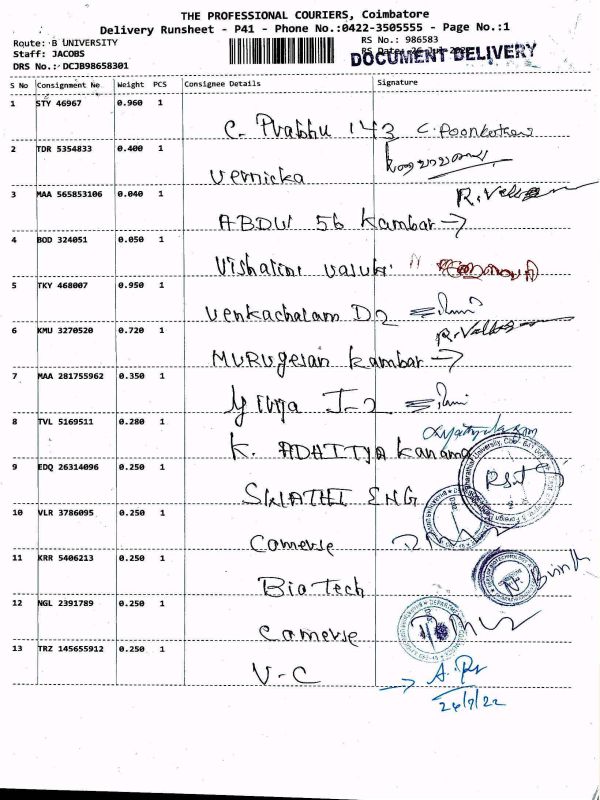 THE PROFESSIONAL COURIERS, Coimbatore
Delivery Runsheet - P41 - Phone No.:0422-3505555 - Page No.:1
Route: B UNIVERSITY
RS No.: 986583
Staff: JACOBS
DOCUMENT DELIVERY
DRS No.: DCJB98658301
S No Consignment No Weight PCS Consignee Details Signature
1 STY 46967 0.960 1
C. Prabhu 143
2 TDR 5354833 0.400 1
Vernicka
3 MAA 565853106 0.040 1
ABDUl 56 Kambar →
4 BOD 324051 0.050 1
Vishalini vasuki "
5 TKY 468007 0.950 1
Venkachalam D2
6 KMU 3270520 0.720 1
MURUgesan Kambar →
7 MAA 281755962 0.350 1
J-2
8 TVL 5169511 0.280 1
K. ADHITYA Kanama
9 EDQ 26314096 0.250 1
SWATHI ENG
10 VLR 3786095 0.250 1
Comerse
11 KRR 5406213 0.250 1
Bio Tech
12 NGL 2391789 0.250 1
Comerse
13 TRZ 145655912 0.250 1
V-C
26/7/22